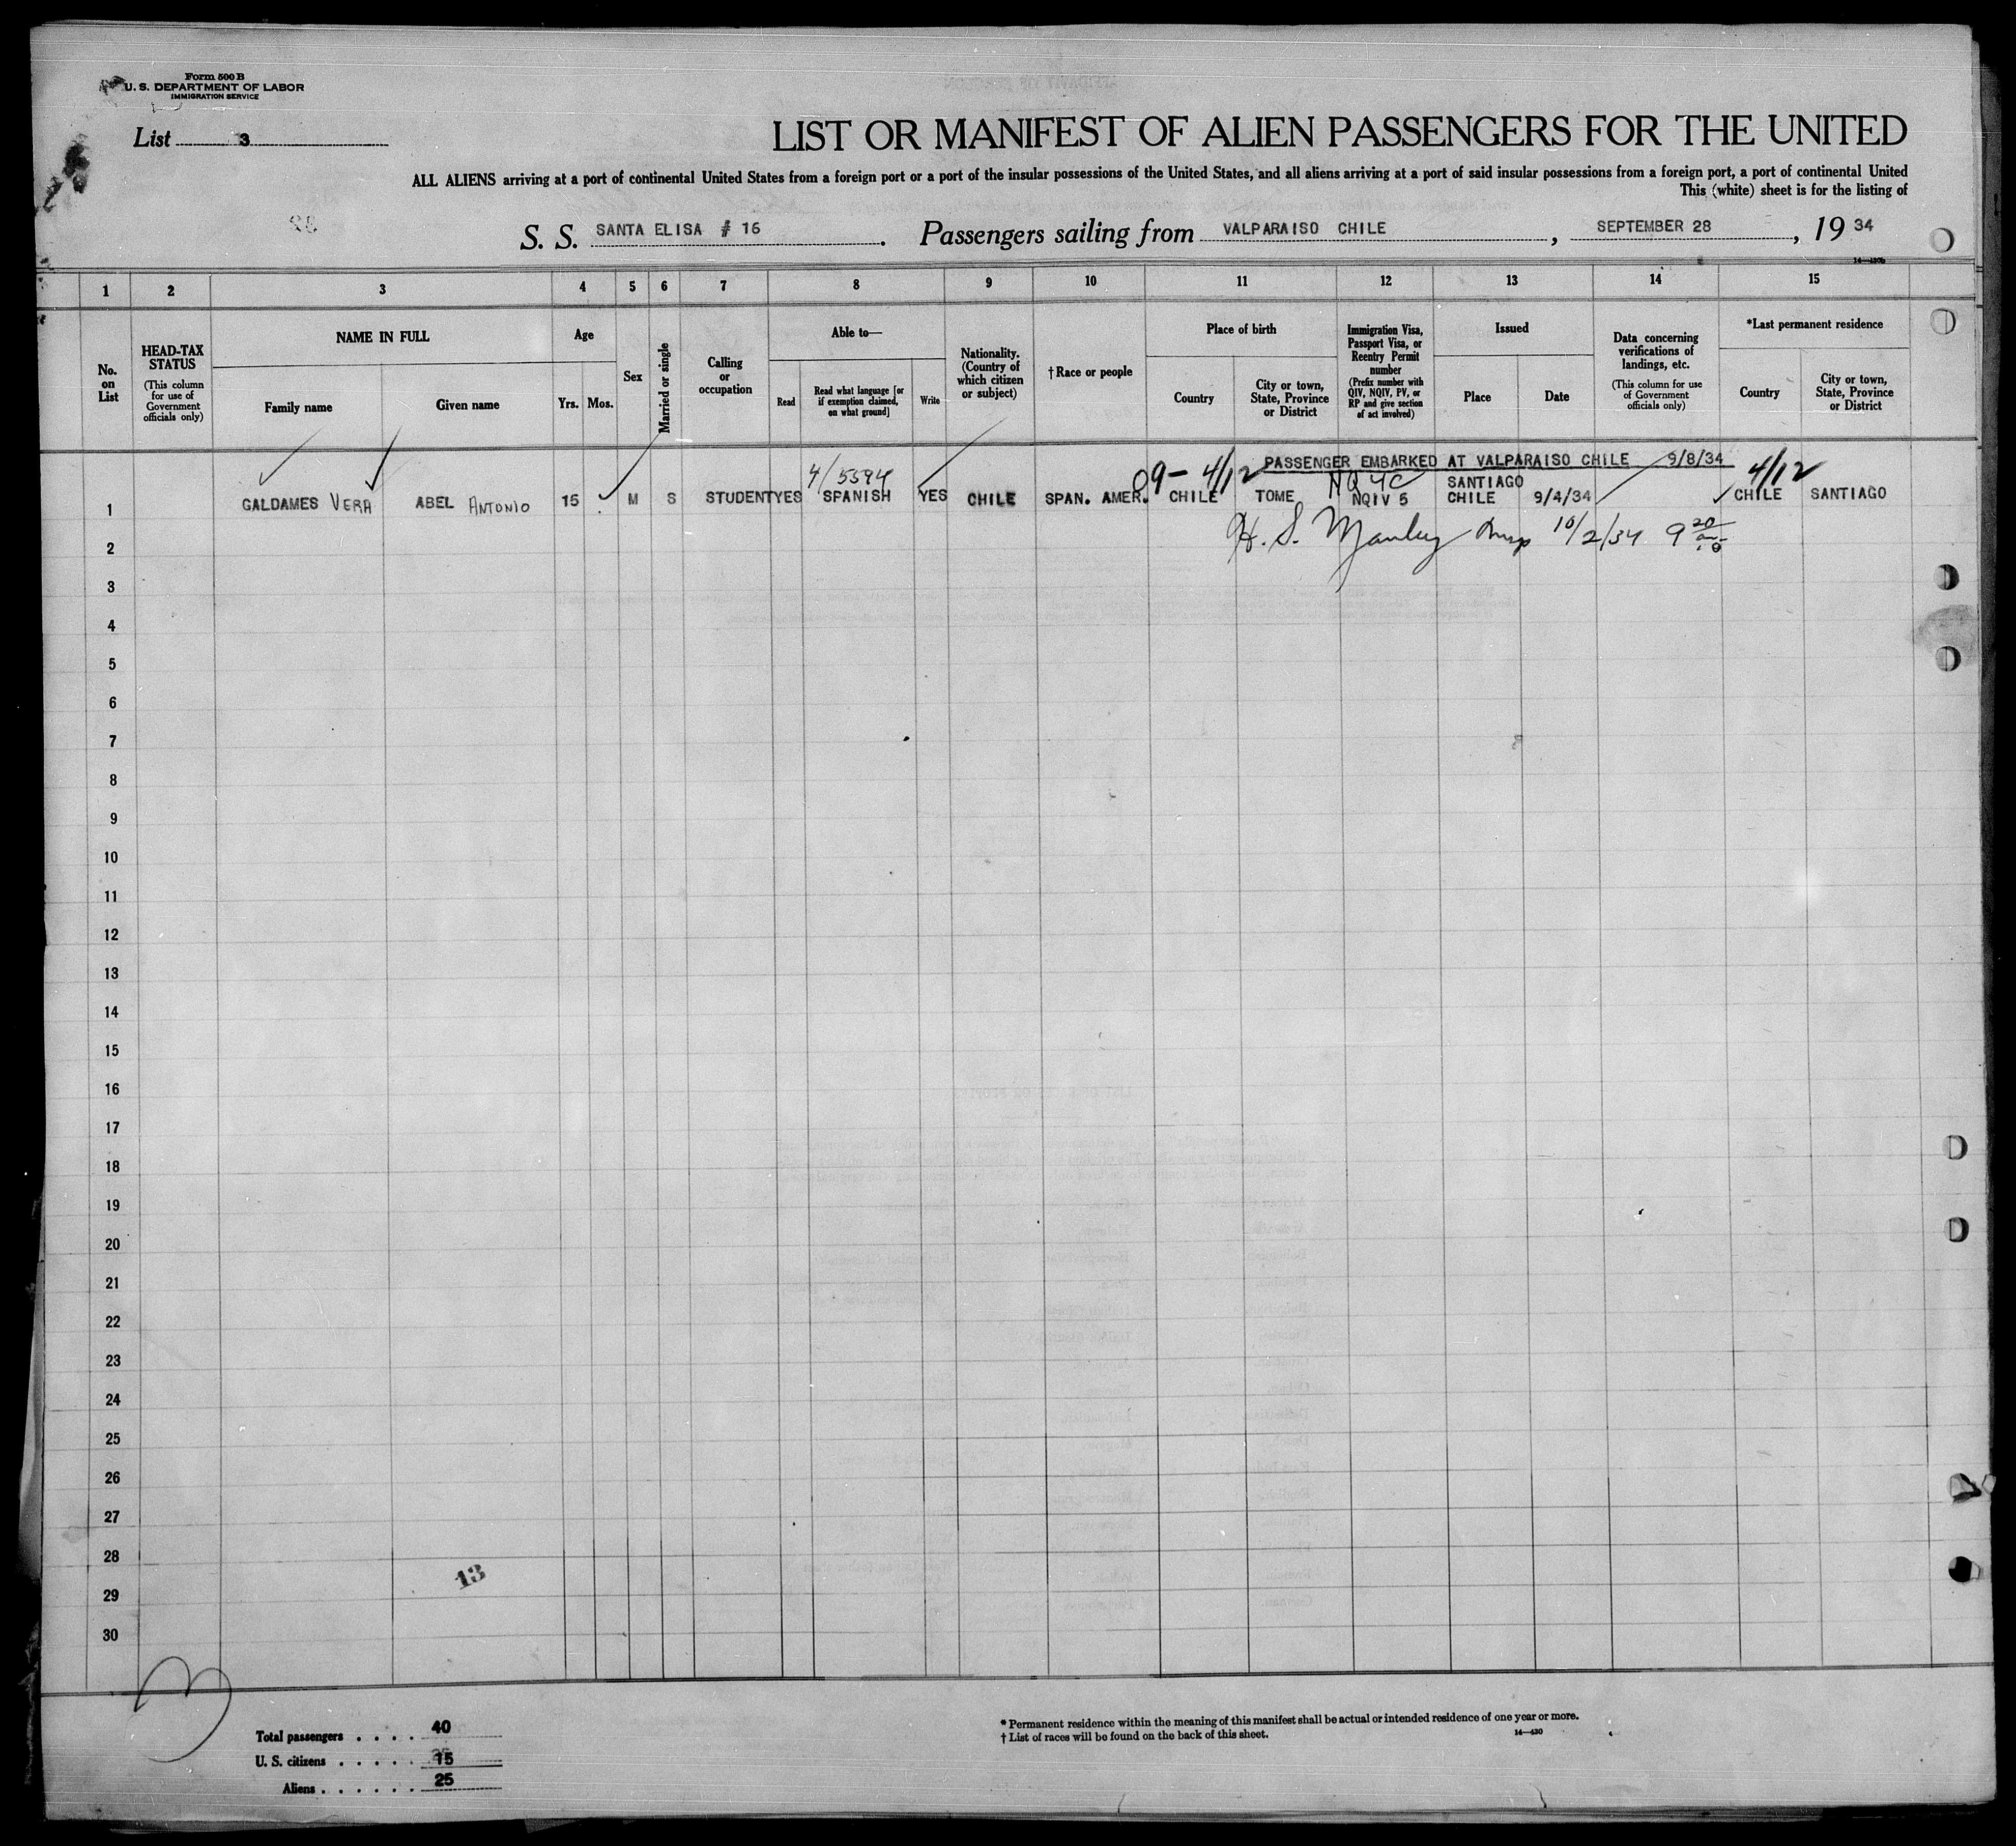 Form 500 B
U. S. DEPARTMENT OF LABOR
IMMIGRATION SERVICE
List 3
LIST OR MANIFEST OF ALIEN PASSENGERS FOR THE UNITED
ALL ALIENS arriving at a port of continental United States from a foreign port or a port of the insular possessions of the United States, and all aliens arriving at a port of said insular possessions from a foreign port, a port of continental United
This (white) sheet is for the listing of
S. S. SANTA ELISA # 16. Passengers sailing from VALPARAISO CHILE, SEPTEMBER 28, 1934
14—430b
1 2 3 4 5 6 7 8 9 10 11 12 13 14 15
No. on List
HEAD-TAX STATUS
(This column for use of Government officials only)
NAME IN FULL
Family name
Given name
Age
Yrs. Mos.
Sex
Married or single
Calling or occupation
Able to—
Read
Read what language [or if exemption claimed, on what ground]
Write
Nationality. (Country of which citizen or subject)
†Race or people
Place of birth
Country
City or town, State, Province or District
Immigration Visa, Passport Visa, or Reentry Permit number
(Prefix number with QIV, NQIV, PV, or RP and give section of act involved)
Issued
Place
Date
Data concerning verifications of landings, etc.
(This column for use of Government officials only)
*Last permanent residence
Country
City or town, State, Province or District
PASSENGER EMBARKED AT VALPARAISO CHILE 9/8/34
4/5594 09- 4/12 NQ 4C 4/12
1 GALDAMES VERA ABEL ANTONIO 15 M S STUDENT YES SPANISH YES CHILE SPAN. AMER. CHILE TOME NQIV 5 SANTIAGO CHILE 9/4/34 CHILE SANTIAGO
2 H. S. Manley Insp 10/2/34 9 20
3
4
5
6
7
8
9
10
11
12
13
14
15
16
17
18
19
20
21
22
23
24
25
26
27
28
13
29
30
Total passengers . . . . . 40
U. S. citizens . . . . . 15
Aliens . . . . . . 25
* Permanent residence within the meaning of this manifest shall be actual or intended residence of one year or more.
† List of races will be found on the back of this sheet.
14—430